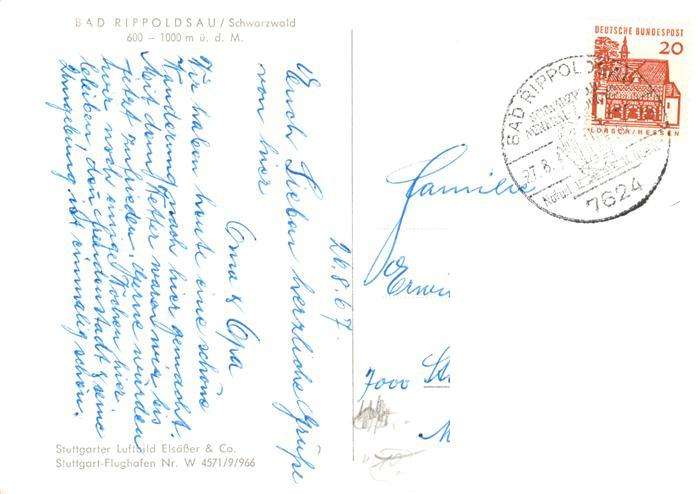 BAD RIPPOLDSAU / Schwarzwald
600 – 1000 m ü. d. M.
26.8.67.
Euch Lieben herzliche Grüße
von hier
Oma & Opa
Wir haben heute eine schöne
Wanderung nach hier gemacht.
Mit dem Wetter waren wir bis
jetzt zufrieden. Gerne würden
wir noch einige Wochen hier
bleiben, denn Freudenstadt & seine
Umgebung ist einmalig schön.
Stuttgarter Luftbild Elsäßer & Co.
Stuttgart-Flughafen Nr. W 4571/9/966
DEUTSCHE BUNDESPOST
20
LORSCH/HESSEN
BAD RIPPOLDSAU
27.8.
7624
Familie
Erwin
7000